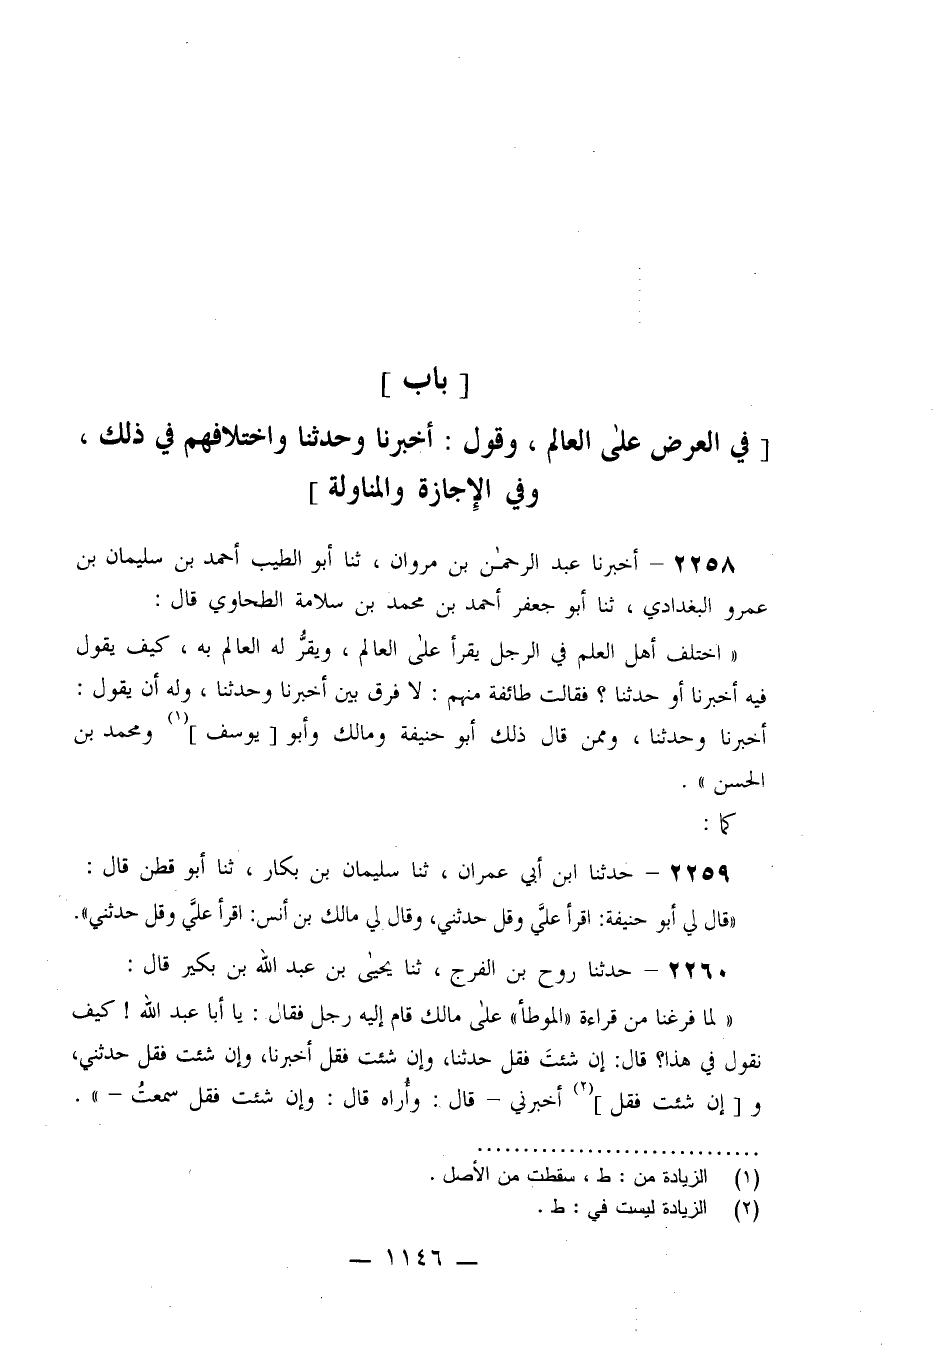 [ باب ]
[ في العرض علىٰ العالم ، وقول : أخبرنا وحدثنا واختلافهم في ذلك ،
وفي الإجازة والمناولة ]
٢٢٥٨ – أخبرنا عبد الرحمٰن بن مروان ، ثنا أبو الطيب أحمد بن سليمان بن
عمرو البغدادي ، ثنا أبو جعفر أحمد بن محمد بن سلامة الطحاوي قال :
« اختلف أهل العلم في الرجل يقرأ علىٰ العالم ، ويقرُّ له العالم به ، كيف يقول
فيه أخبرنا أو حدثنا ؟ فقالت طائفة منهم : لا فرق بين أخبرنا وحدثنا ، وله أن يقول :
أخبرنا وحدثنا ، وممن قال ذلك أبو حنيفة ومالك وأبو [ يوسف ](١) ومحمد بن
الحسن » .
كما :
٢٢٥٩ – حدثنا ابن أبي عمران ، ثنا سليمان بن بكار ، ثنا أبو قطن قال :
«قال لي أبو حنيفة: اقرأ عليَّ وقل حدثني، وقال لي مالك بن أنس: اقرأ عليَّ وقل حدثني».
٢٢٦٠ – حدثنا روح بن الفرج ، ثنا يحيىٰ بن عبد الله بن بكير قال :
« لما فرغنا من قراءة «الموطأ» علىٰ مالك قام إليه رجل فقال : يا أبا عبد الله ! كيف
نقول في هذا؟ قال: إن شئتَ فقل حدثنا، وإن شئت فقل أخبرنا، وإن شئت فقل حدثني،
و [ إن شئت فقل ](٢) أخبرني – قال : وأُراه قال : وإن شئت فقل سمعتُ – » .
(١) الزيادة من : ط ، سقطت من الأصل .
(٢) الزيادة ليست في : ط .
– ١١٤٦ –